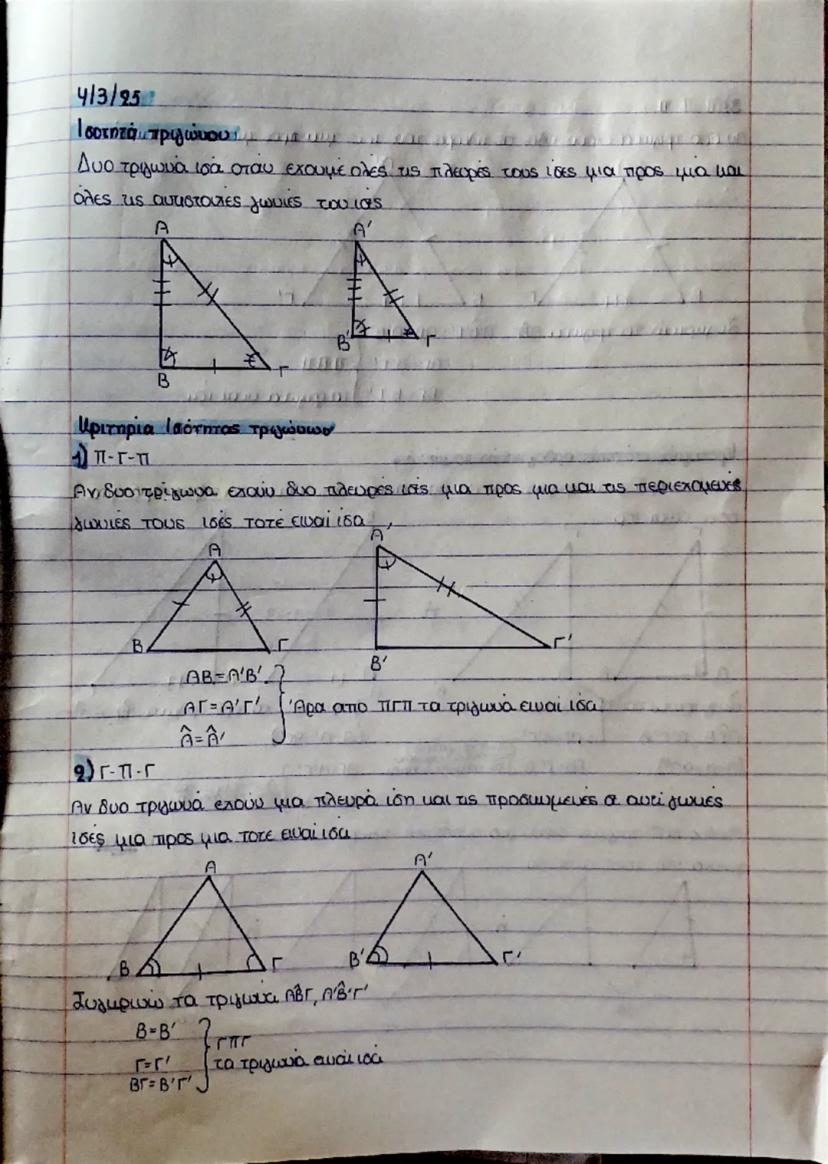 4/3/25
Ισοτητά τριγώνου
Δυο τριγωνά ισά οταν εχουμέ ολές τις πλευρές τους ίσες μια προς μιά και
όλες τις αντιστοιχές γωνιές του ισές
Α
Α'
Β
Γ
Β'
Γ
Κριτηρία Ισότητας τριγώνων
1) Π-Γ-Π
Αν δυο τρίγωνα εχούν δυο πλευρές ισές μια προς μια και τις περιεχομενές
γωνιές τους ισές τοτέ ειναί ίσα
Α
Α
Β
Γ
Β'
Γ'
ΑΒ=Α'Β'
ΑΓ=Α'Γ' Άρα απο ΠΓΠ τα τριγωνά ειναί ίσα
Â=Â'
2) Γ-Π-Γ
Αν δυο τριγωνά εχούν μια πλευρά ίση και τις προσκιμενές σ αυτί γωνιές
ισές μια προς μια τοτέ ειναί ισα
Α
Α'
Β
Γ
Β'
Γ'
Συγκρινω τα τριγωνα ΑΒ̂Γ, Α'Β̂'Γ'
Β=Β'
ΓΠΓ
Γ=Γ' τα τριγωνά ειναί ισά
ΒΓ=Β'Γ'